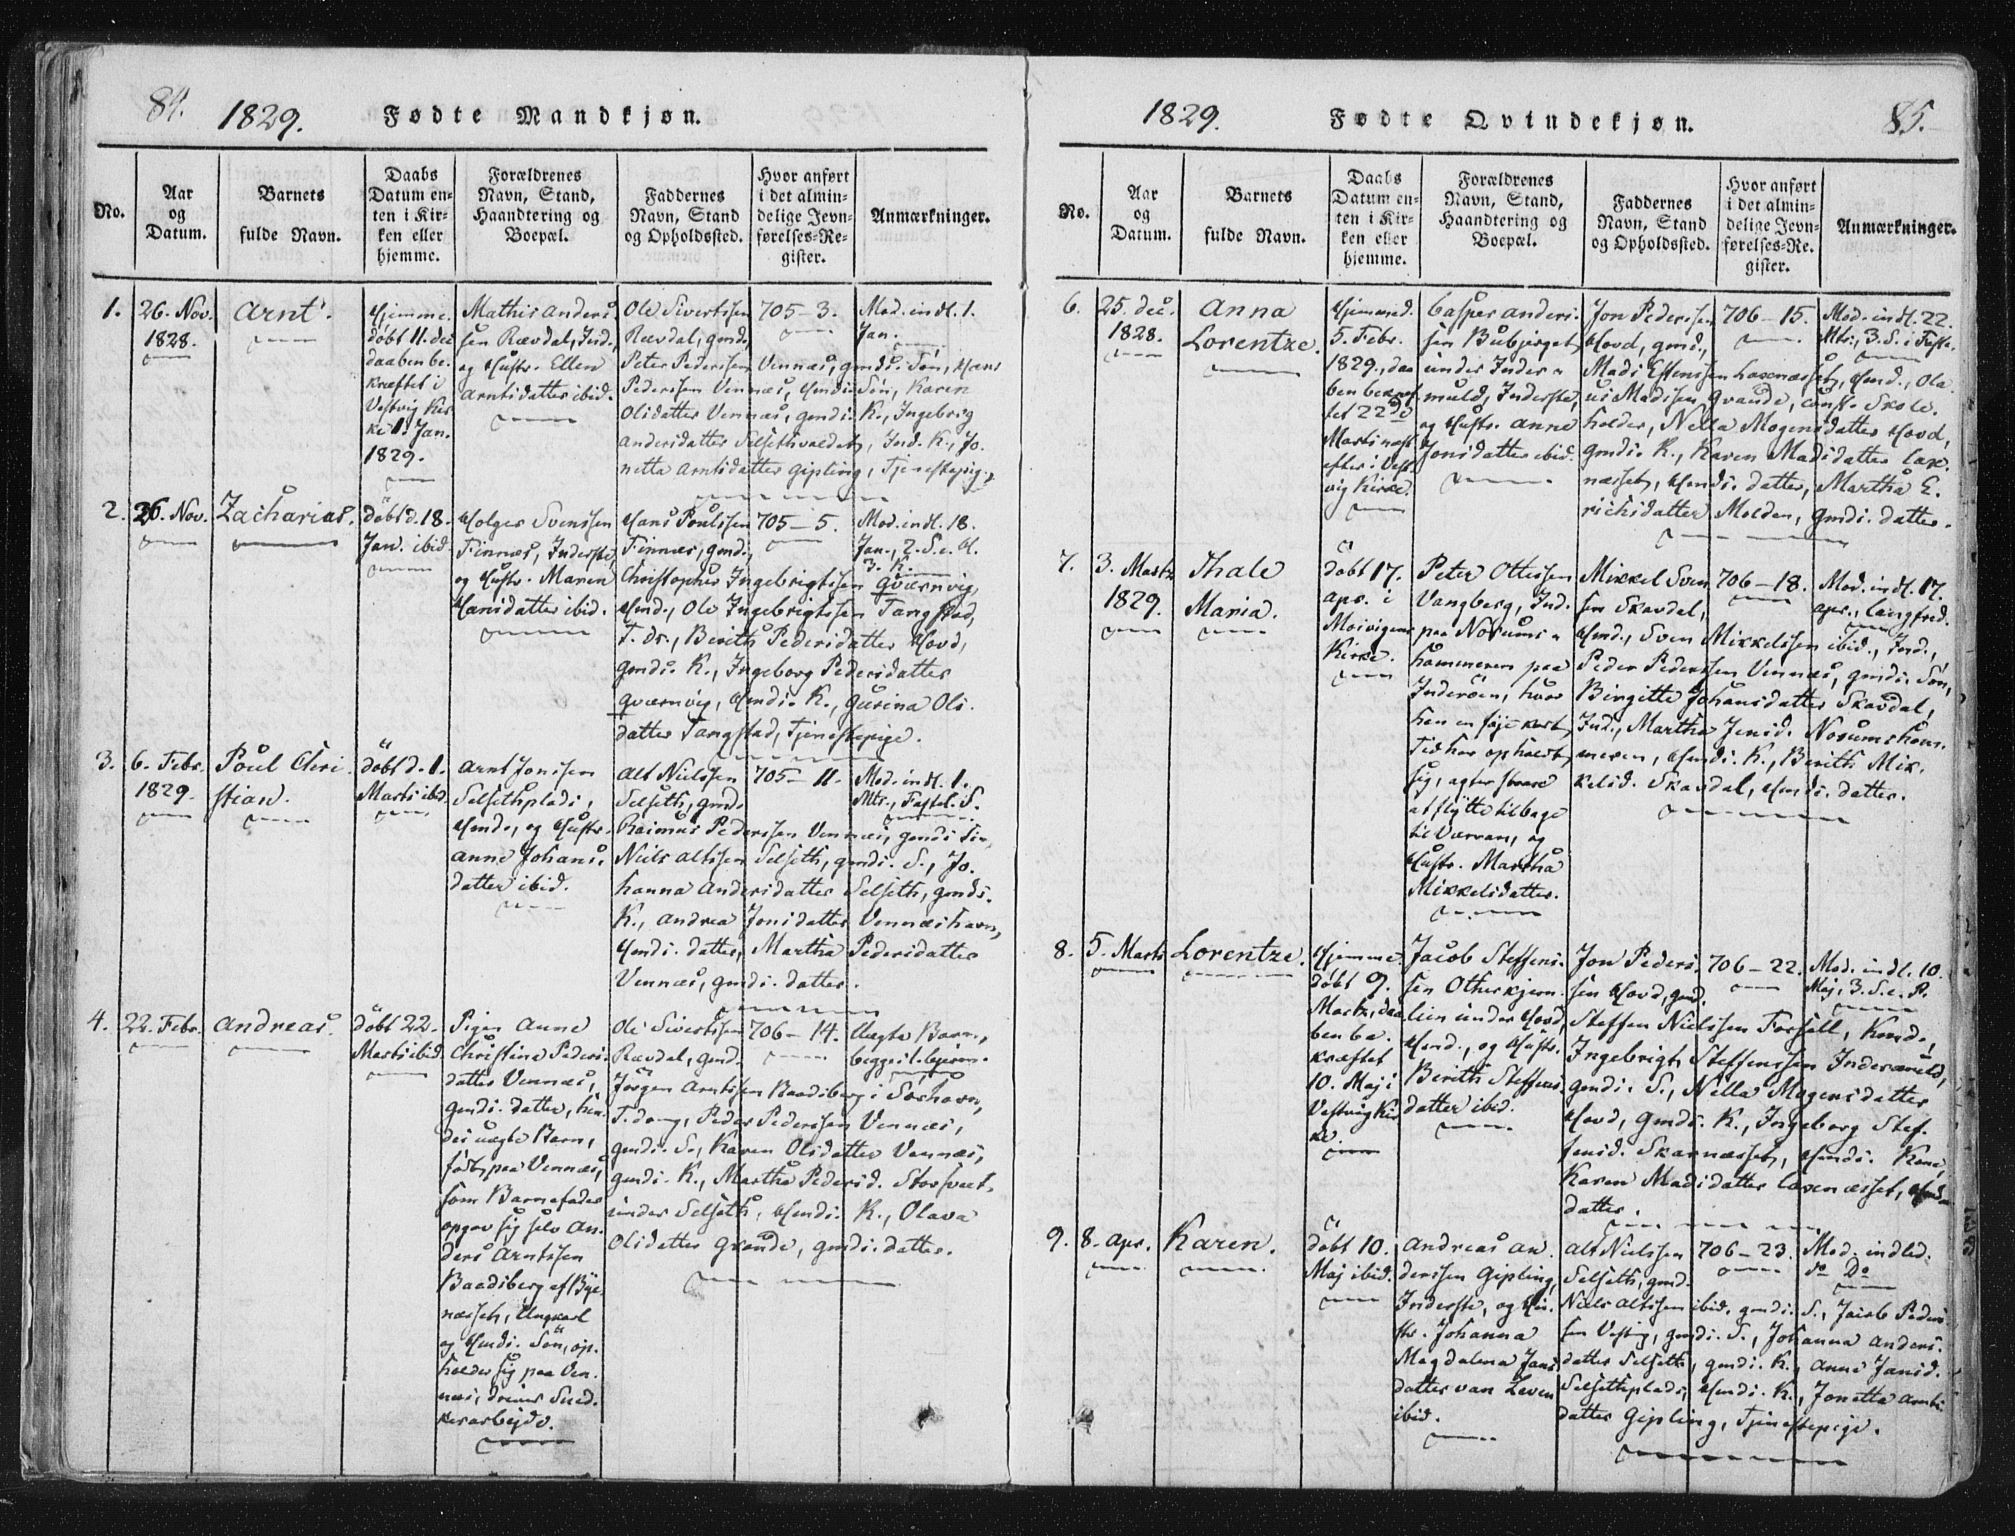 84.
1829.
Fødte Mandkjøn.
No.
Aar
og
Datum.
Barnets
fulde Navn.
Daabs
Datum en-
ten i Kir-
ken eller
hjemme.
Forældrenes
Navn, Stand,
Haandtering og
Boepæl.
Faddernes
Navn, Stand
og Opholdssted.
Hvor anført
i det almin-
delige Jevn-
førelses-Re-
gister.
Anmærkninger.
1.
26. Nov.
1828.
Arnt.
Hjemme-
døbt 11. dec.
daaben be-
kræftet i
Vestvig Kir
ke 1. Jan.
1829.
Mathis Anders
sen Rævdal, Ind.,
og Hustr. Ellen
Arntsdatter ibid.
Ole Sivertssen
Rævdal, gmd.,
Peter Pederssen Vennæs, gmds. Søn, Hans
Pederssen Vennæs, Hmds. Søn, Karen
Olsdatter Vennæs, gmds. K., Ingeborg
Andersdatter Selsethvaldet, Ind. K., Jo-
netta Arntsdatter Gipling, Tjenestepig.
705 - 3.
Mod. indl. 1.
Jan.
2.
26. Nov.
Zacharias.
døbt d. 18.
Jan. ibid.
Holger Svenssen
Finnæs, Inderste,
og Hustr. Maren
Hansdatter ibid.
Hans Poulssen
Finnæs, gmd.,
Christopher Ingebrigtssen Qværnvig,
Hmd., Ole Ingebrigtssen Tangstad,
T. dr., Berith Pedersdatter Hovd,
gmds. K., Ingeborg Pedersdatter
Qværnvig, Hmds. K., Gurina Ols-
datter Tangstad, Tjenestepige.
705 - 5.
Mod. indl. 18.
Jan., 2. S. e. H.
3. K.
3.
6. Febr.
1829.
Poul Chri
stian.
døbt d. 1.
Marts ibid.
Arnt Jonssen
Selsethplads,
Hmd., og Hustr.
Anne Johans-
datter ibid.
Alt Nielssen
Selseth, gmd.
Rasmus Pederssen Vennæs, gmds. Søn,
Niels Altssen Selseth, gmds. S., Jo-
hanna Andersdatter Selseth, gmds.
K., Andrea Jonsdatter Vennæshavn,
Hmds. datter, Martha Pedersdatter
Vennæs, gmds. datter.
705 - 11.
Mod. indl. 1.
Mts., Fastel. S.
4.
22. Febr.
Andreas.
døbt 22.
Marts ibid.
Pigen Anne
Christina Peders-
datter Vennæs,
gmds. datter, hen-
des uægte Barn,
født paa Vennæs,
som Barnefader
opgav sig selv An-
ders Arntssen
Baadsberg af Bye-
næsset, Ungkarl
og Hmds. Søn, op-
holder sig paa Ven-
næs, driver Sned-
kerarbejde.
Ole Sivertssen
Rævdal, gmd.
Jørgen Arntssen Baadsberg i
T. dreng, Peder Pederssen Vennæs,
gmds. S., Karen Olsdatter Vennæs,
gmds. K., Martha Pedersd.
under Selseth, Hmds. K., Olava
Olsdatter Grande, gmds. datter.
706 - 14.
Uægte Barn,
begges 1. Lejerm.
1829.
Fødte Qvindekjøn.
85.
No.
Aar
og
Datum.
Barnets
fulde Navn.
Daabs
Datum en-
ten i Kir-
ken eller
hjemme.
Forældrenes
Navn, Stand,
Haandtering og
Boepæl.
Faddernes
Navn, Stand
og Opholdssted.
Hvor anført
i det almin-
delige Jevn-
førelses-Re-
gister.
Anmærkninger.
6.
25. dec.
1828.
Anna
Lorentze.
Hjemmed.
5. Febr.
1829., daa
ben bekræf
tet 22de
Marts næst
efter i Vest
vig Kirke.
Casper Anders-
sen Bubjerget
under Inder-
muld, Inderste,
og Hustr. Anne
Jonsdatter ibid.
Jon Pederssen
Hovd, gmd.,
Mads Estenssen Laxenæsset, Hmd., Ola
us Madssen Grande, const. Skole-
holder, Nella Mogensdatter Hovd,
gmds. K., Karen Madsdatter Laxe-
næsset, Hmds. datter, Martha E-
richsdatter Molden, gmds. datter.
706 - 15.
Mod. indl. 22.
Mts., 3. S. i Faste.
7.
3. Marts
1829.
Thale
Maria.
døbt 17.
apr. i
Moivigens
Kirke.
Peter Ottessen
Vangberg, Ind.
paa Norums-
hammeren paa
Inderøen, hvor
han en føje kort
Tid har opholdt
sig, agter snare
at flytte tilbage
til Værran, og
Hustr. Martha
Mikkelsdatter.
Mikkel Sven
sen Skavdal,
Hmd., Sven Mikkelssen ibid., Ind.,
Peder Pederssen Vennæs, gmds. Søn,
Birgitte Johansdatter Skavdal,
Ind., Martha Jensd. Norumsham-
meren, Hmds. K., Berith Mik-
kelsd. Skavdal, Hmds. datter.
706 - 18.
Mod. indl. 17.
apr., Langfred.
8.
5. Marts
Lorentze.
Hjemme-
døbt 9.
Marts, daa
ben be-
kræftet
10. Maj i
Vestvig Kir
ke.
Jacob Steffens-
sen Otherkjern-
lien under Hovd,
Hmd., og Hustr.
Berith Steffens-
datter ibid.
Jon Peders-
sen Hovd, gmd.
Steffen Nielssen Forsell, Hmd.,
Ingebrigt Steffenssen Indermuld,
gmds. S., Nella Mogensdatter
Hovd, gmds. K., Ingeborg Stef-
fensd. Skarnæsset, Hmds. Kone,
Karen Madsdatter Laxenæsset, Hmds.
datter.
706 - 22.
Mod. indl. 10.
Maj, 3. S. e. P.
9.
8. Apr.
Karen.
døbt 10.
Maj ibid.
Andreas An-
derssen Gipling,
Inderste, og Hu-
str. Johanna
Magdalena Jans
datter van Leven
ibid.
Alt Nielssen
Selseth, gmd.
Niels Altssen ibid. gmds. S., Jacob Peders-
sen Vestvig, gmds. S., Johanna Anders-
datter Selseth, gmds. K., Anne Jansd.
Selsethplads, Hmds. K., Jonetta Arnts-
datter Gipling, Tjenestepige.
706 - 23.
Mod. indled.
do Do